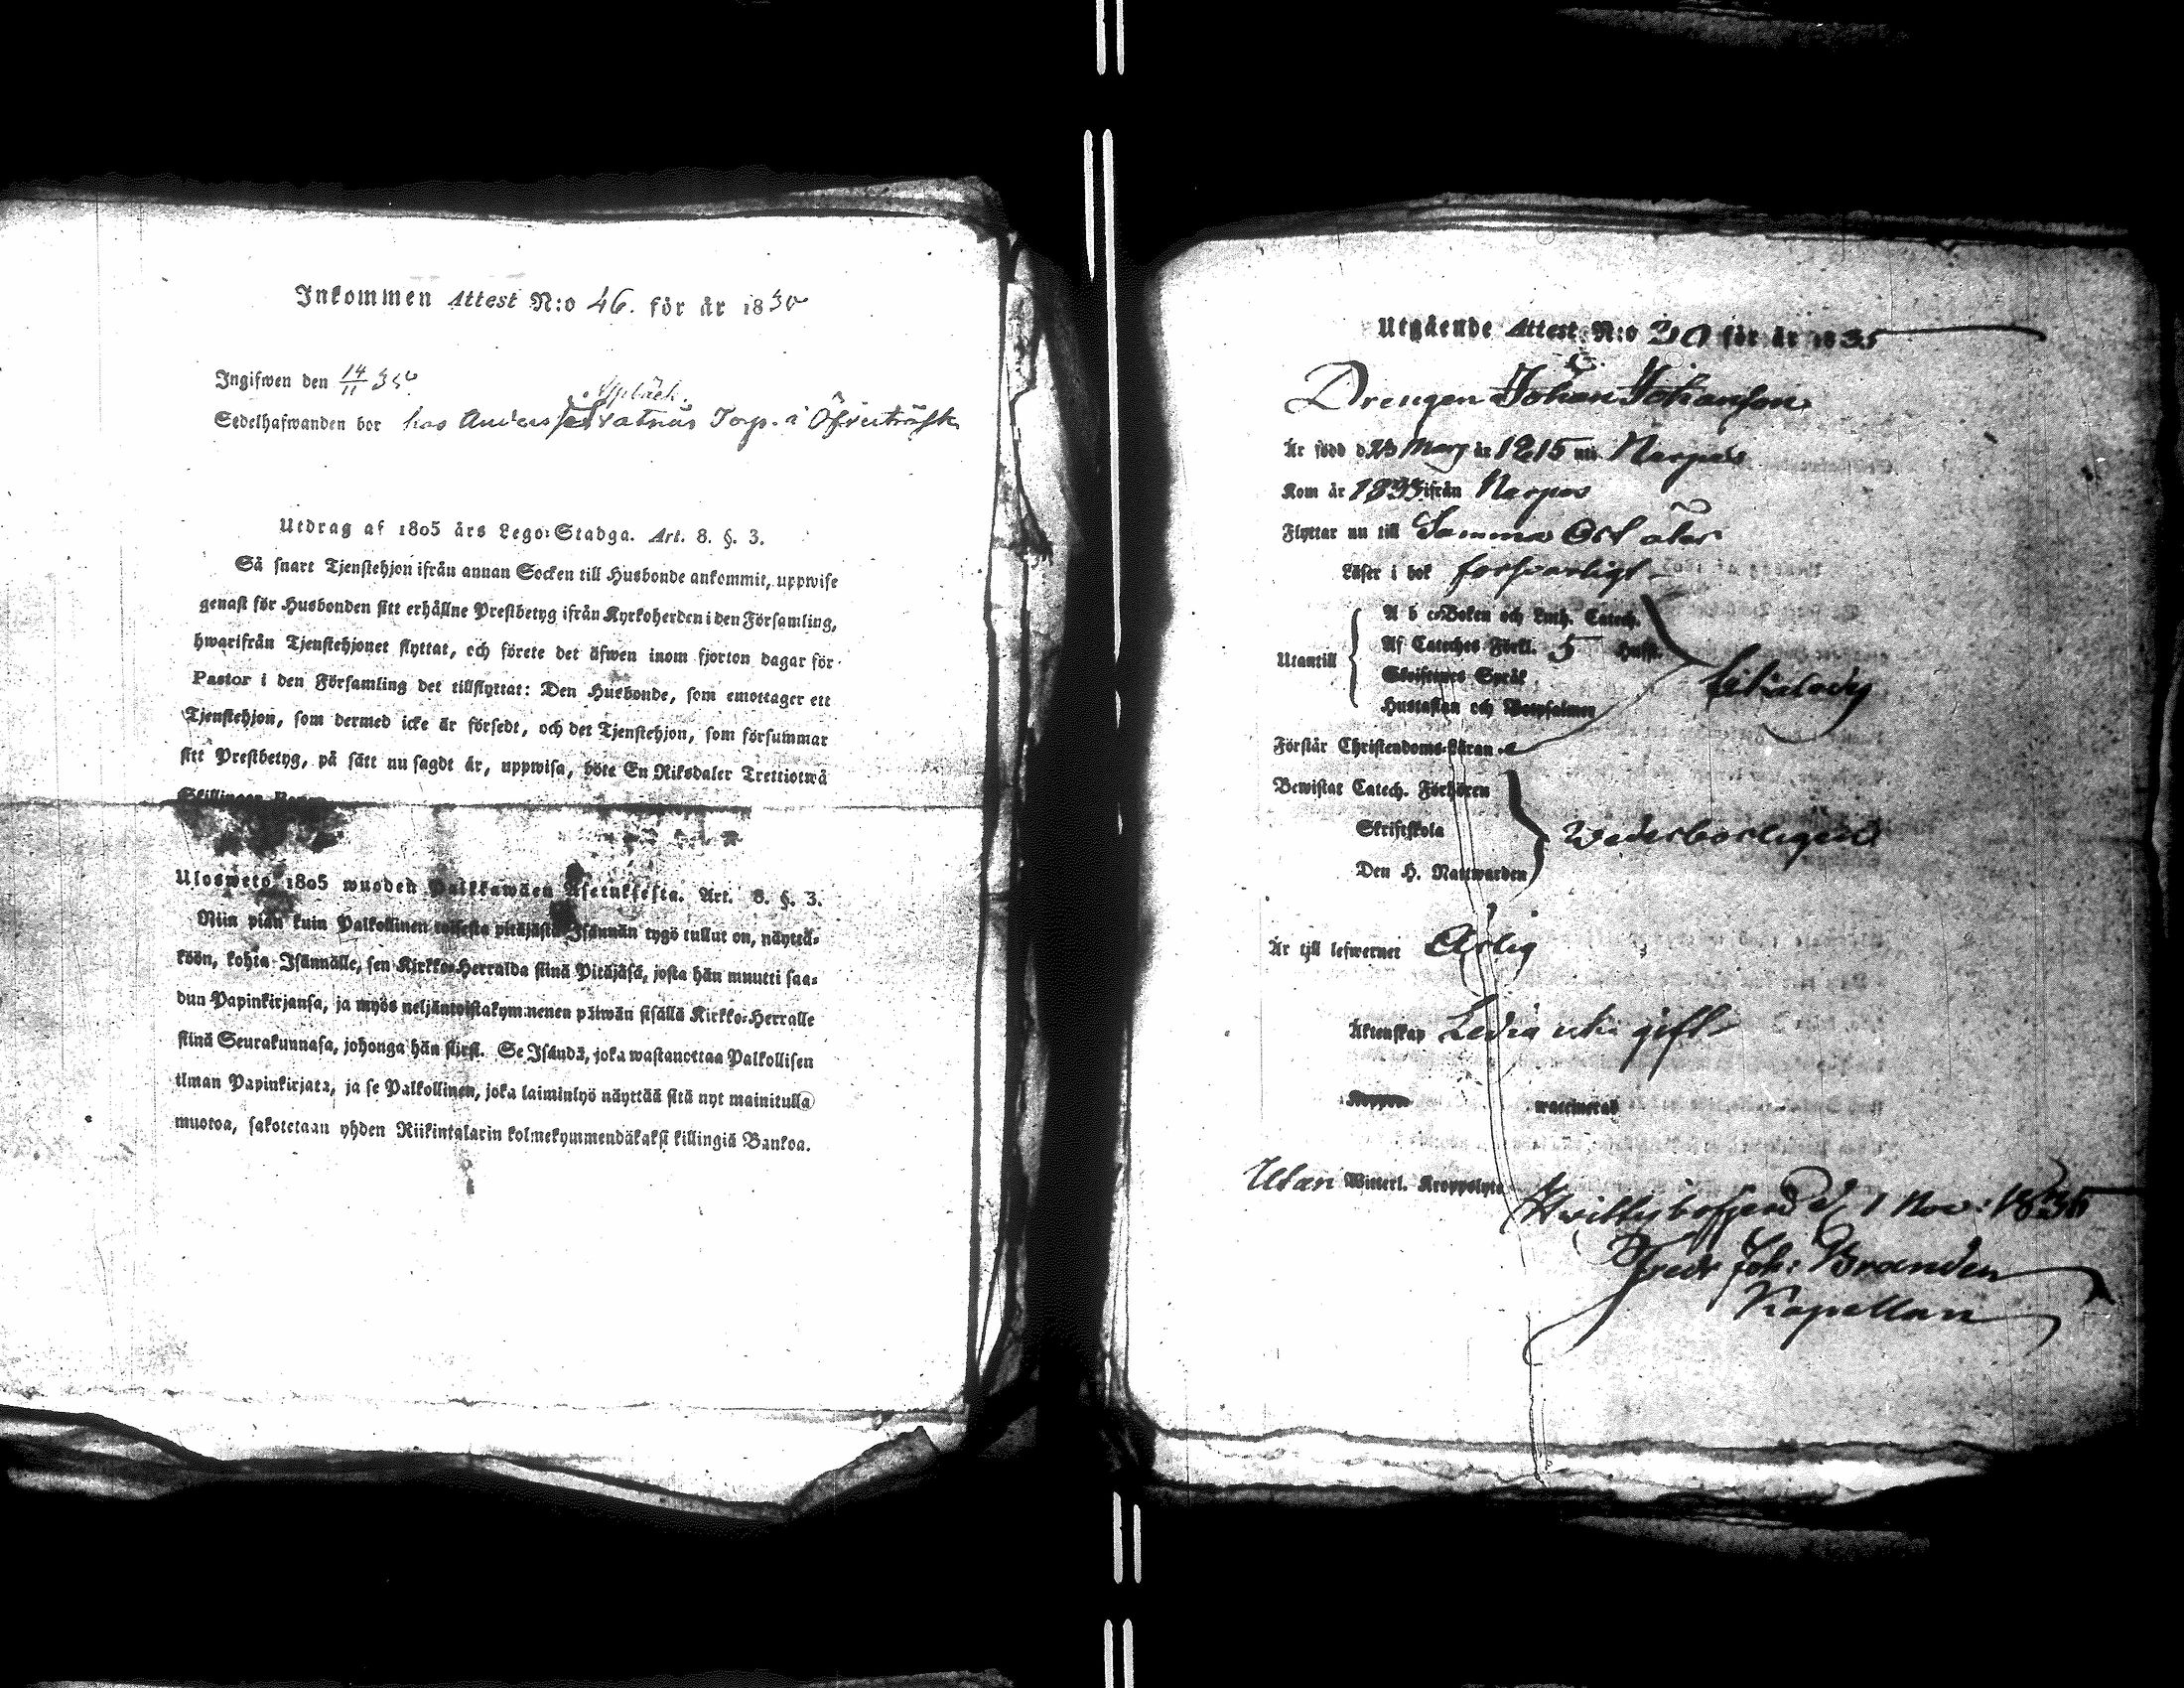 Inkommen Attest N:o 46. för år 1830
Ingifwen den 14/11 35
Sedelhafwanden bor hos Anders Torp. i Öfverträsk
Utdrag af 1805 års Lego-Stadga. Art. 8. §. 3.
Så snart Tjenstehjon ifrån annan Socken till Husbonde ankommit, uppwise
genast för Husbonden sitt erhållne Prestbetyg ifrån Kyrkoherden i den Församling,
hwarifrån Tjenstehjonet flyttat, och förete det äfwen inom fjorton dagar för
Pastor i den Församling det tillflyttat: Den Husbonde, som emottager ett
Tjenstehjon, som dermed icke är försedt, och det Tjenstehjon, som försummar
sitt Prestbetyg, på sätt nu sagdt är, uppwisa, böte En Riksdaler Trettiotwå
Skillingar Banco
Ulosweto 1805 wuoden Palkkawäen Asetuksesta. Art. 8. §. 3.
Niin pian kuin Palkollinen toisesta pitäjästä Isännän tygö tullut on, näyttä-
köön, kohta Isännälle, sen Kirkko-Herralda siinä Pitäjäsä, josta hän muutti saa-
dun Papinkirjansa, ja myös neljäntoistakymmenen päiwän sisällä Kirkko-Herralle
siinä Seurakunnasa, johonga hän siirsi. Se Isändä, joka wastanottaa Palkollisen
ilman Papinkirjata, ja se Palkollinen, joka laiminlyö näyttää sitä nyt mainitulla
muotoa, sakotetaan yhden Riikintalarin kolmekymmendäkaksi killingiä Bankoa.
Utgående Attest N:o 30 för år 1835
Drengen Johan Johanson
Är född d. 23 Mars år 1815 uti Nerpes
Kom år 1833 ifrån Nerpes
Flyttar nu till Samma Ort åter
Läser i bok försvarligt
Utantill
A b c-Boken och Luth. Catech.
Af Cateches Förkl. 5 Hufst.
Skriftenes Språk
Hustaflan och Botpsalmer
Förstår Christendoms-Läran
Bewistat Catech. Förhören
Skriftskola
Den H. Nattwarden
Wederbörligen
Är till lefwernet Ärlig
Äktenskap Ledig utur gift
Koppor waccinerad
Utan Witterl. Kroppslyte
d. 1 Nov: 1835
Fredr Joh: Branden
Kapellan